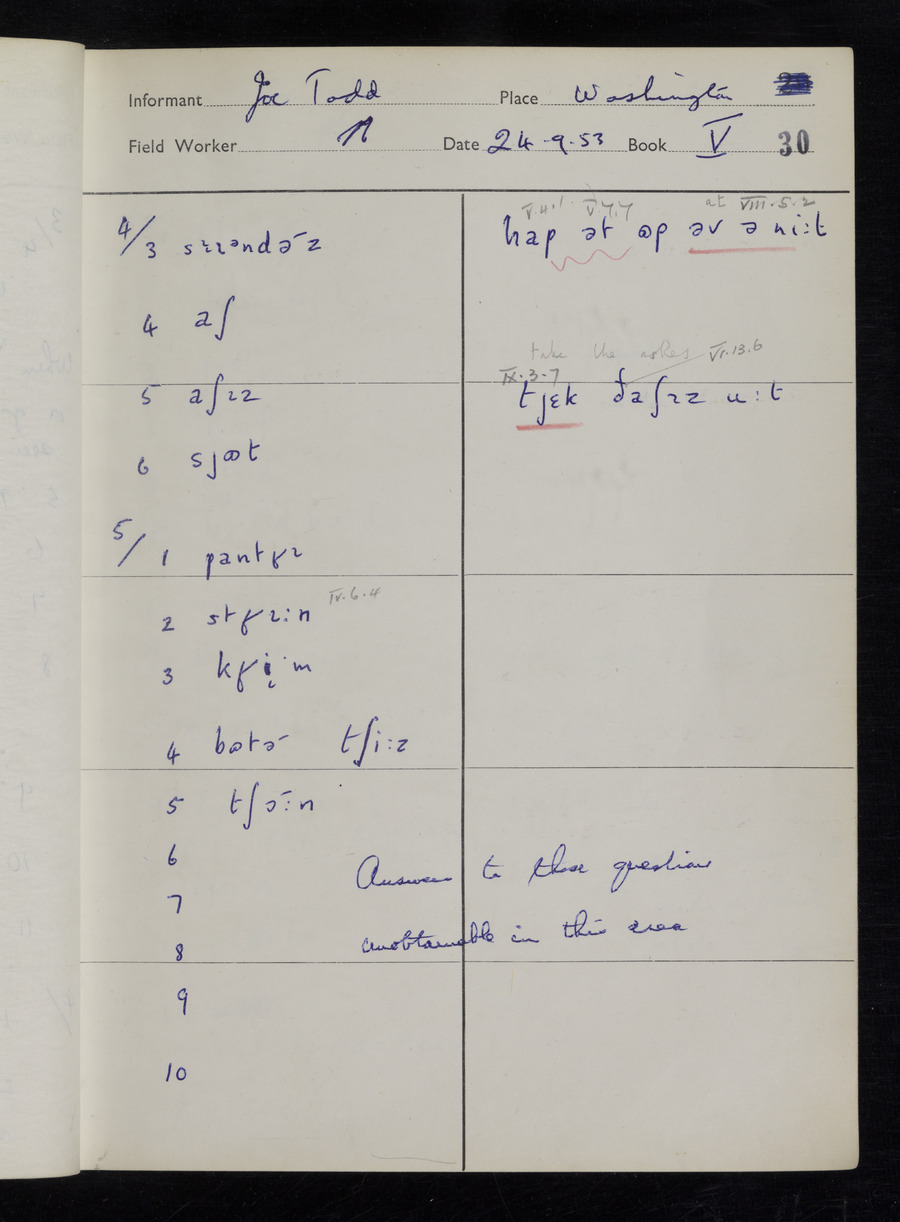 Informant Joe Todd Place Washington
Field Worker Date 24.9.53 Book V 30
V.4.1 V.7.7 at VIII.5.2
4/3 hap ət ɷp əv ə ni:t
4 aʃ
take the ashes VI.13.6
IX.3.7
5 aʃɪz tjɛk ðaʃɪz u:t
6 sjɷt
5/1 pantʁɪ
2 stʁɪ:n IV.6.4
3 kʁi:m
4 bɷtə tʃi:z
5 tʃɔ:n
6 Answers to these questions
7
8 unobtainable in this area
9
10